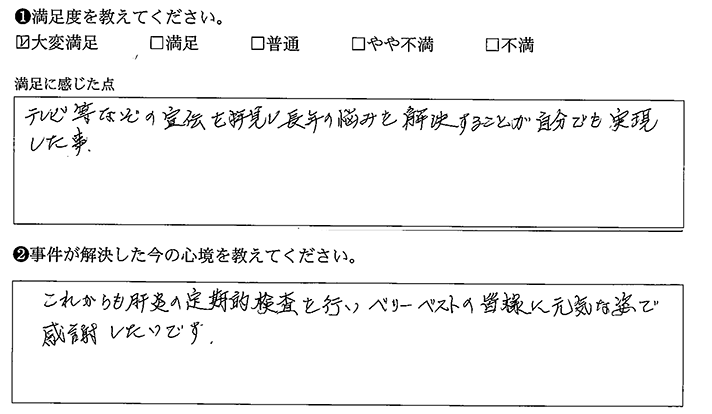 ❶満足度を教えてください。
☑大変満足 □満足 □普通 □やや不満 □不満
満足に感じた点
テレビ等などの宣伝を拝見し長年の悩みを解決することが自分でも実現
した事.
❷事件が解決した今の心境を教えてください。
これからも肝炎の定期的検査を行いベリーベストの皆様に元気な姿で
感謝したいです.